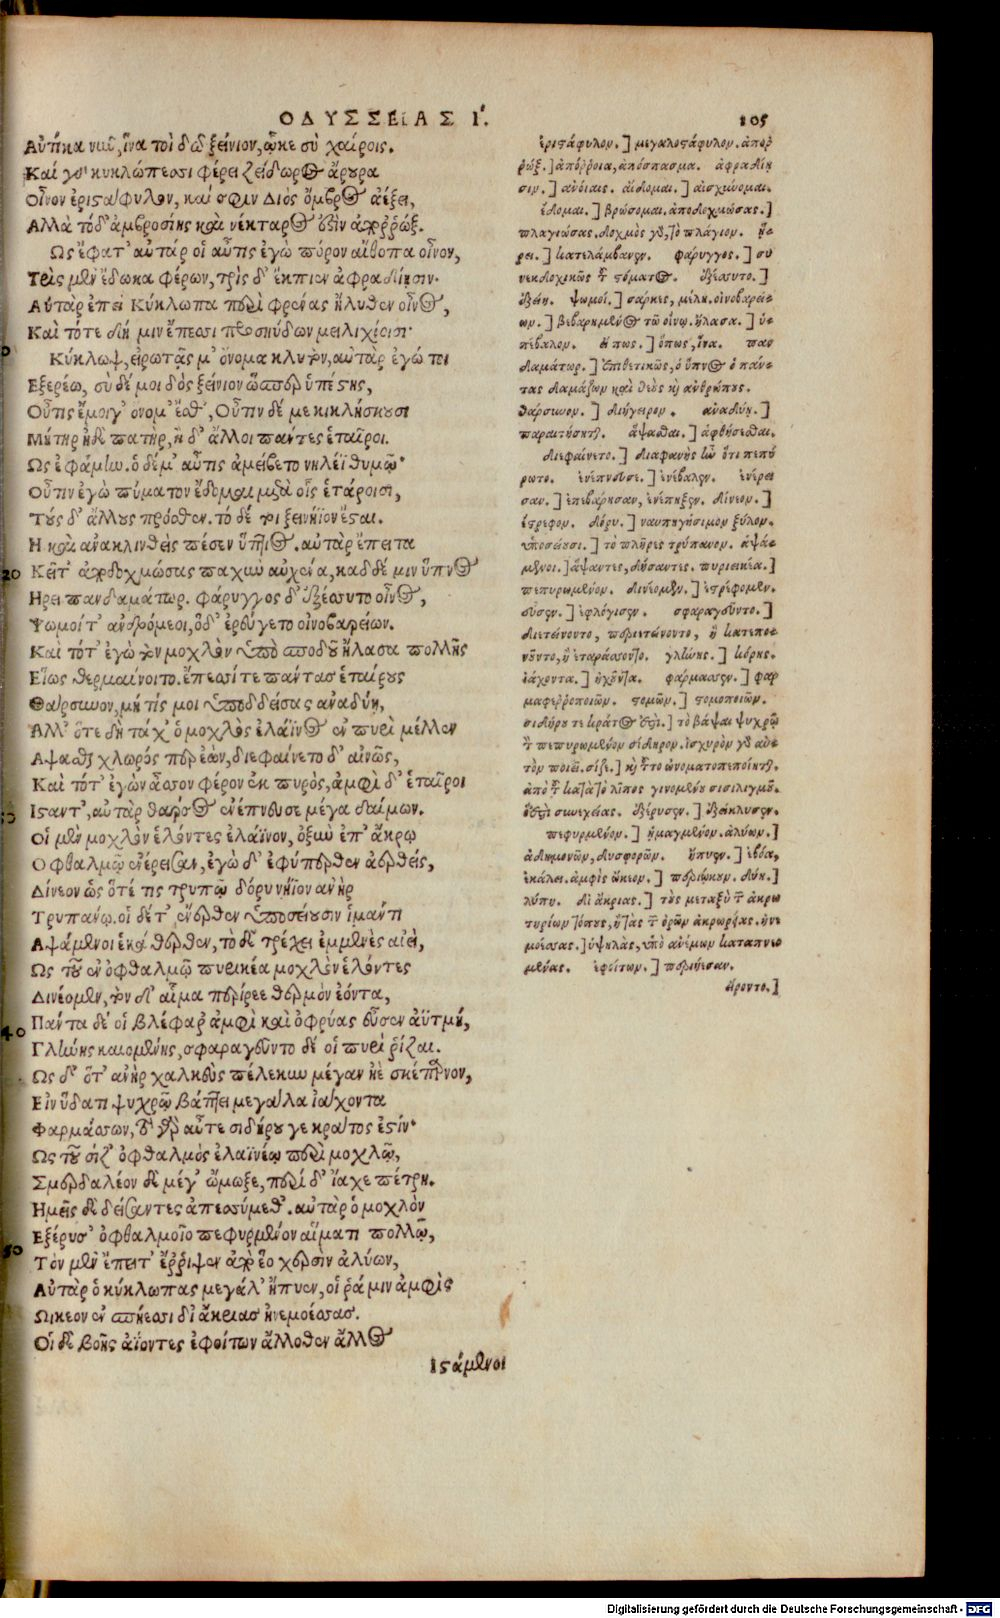 ΟΔΥΣΣΕΙΑΣ Ι.
105
Αὐτίκα νῦν, ἵνα τοὶ δῶ ξείνιον, ᾧ κε σὺ χαίροις.
Καὶ γὰρ κυκλώπεσσι φέρει ζείδωρος ἄρουρα
Οἶνον ἐριστάφυλον, καί σφιν Διὸς ὄμβρος ἀέξει,
Ἀλλὰ τόδ' ἀμβροσίης καὶ νέκταρός ὅστιν ἀπορρώξ.
Ὣς ἔφατ' αὐτάρ οἱ αὖτις ἐγὼ πόρον αἴθοπα οἶνον,
Τρὶς μὲν ἔδωκα φέρων, τρὶς δ' ἔκπιεν ἀφραδίῃσιν.
Αὐτὰρ ἐπεὶ Κύκλωπα περὶ φρένας ἤλυθεν οἶνος,
Καὶ τότε δή μιν ἔπεσσι προσηύδων μειλιχίοισι·
Κύκλωψ, εἰρωτᾷς μ' ὄνομα κλυτὸν, αὐτὰρ ἐγώ τοι
Ἐξερέω, σὺ δέ μοι δὸς ξείνιον ὥσπερ ὑπέστης,
Οὖτις ἔμοιγ' ὄνομ' ἔσθ', Οὖτιν δέ με κικλήσκουσι
Μήτηρ ἠδὲ πατὴρ, ἠ δ' ἄλλοι πάντες ἑταῖροι.
Ὣς ἐφάμην. ὁ δέ μ' αὖτις ἀμείβετο νηλέϊ θυμῷ·
Οὖτιν ἐγὼ πύματον ἔδομαι μετὰ οἷς ἑτάροισι,
Τοὺς δ' ἄλλους πρόσθεν. τὸ δέ τοι ξεινήϊον ἔσται.
Η καὶ ἀνακλινθεὶς πέσεν ὕπτιος. αὐτὰρ ἔπειτα
20 Κεῖτ' ἀποδοχμώσας παχιὺ αὐχένα, καδ δέ μιν ὕπνος
Ηρει πανδαμάτωρ. φάρυγγος δ' ἐξέσσυτο οἶνος,
Ψωμοί τ' ἀνδρόμεοι, ὁ δ' ἐρεύγετο οἰνοβαρείων.
Καὶ τότ' ἐγὼ τὸν μοχλὸν ὑπὸ σποδοῦ ἤλασα πολλῆς
Εἵως θερμαίνοιτο. ἔπεσσί τε πάντας ἑταίρους
Θάρσυνον, μή τίς μοι ὑποδδείσας ἀναδύη,
Ἀλλ' ὅτε δὴ τάχ' ὁ μοχλὸς ἐλάϊνος ἐν πυρὶ μέλλεν
Ἅψασθαι χλωρός περ ἐὼν, διεφαίνετο δ' αἰνῶς,
Καὶ τότ' ἐγὼν ἆσσον φέρον ἐκ πυρὸς, ἀμφὶ δ' ἑταῖροι
Ισταντ', αὐτὰρ θάρσος ἐνέπνευσε μέγα δαίμων.
Οἱ μὲν μοχλὸν ἑλόντες ἐλάϊνον, ὀξὺν ἐπ' ἄκρῳ
Οφθαλμῷ ἐνέρεισαν, ἐγὼ δ' ἐφύπερθεν ἀερθείς,
Δίνεον ὡς ὅτέ τις τρυπῷ δόρυ νήϊον ἀνὴρ
Τρυπάνῳ. οἱ δέ τ' ἔνερθεν ὑποσείουσιν ἱμάντι
Αψάμενοι ἑκάτερθεν, τὸ δὲ τρέχει ἐμμενὲς αἰεὶ,
Ως τοῦ ἐν ὀφθαλμῷ πυρικέα μοχλὸν ἑλόντες
Δινέομεν, τὸν δ' αἷμα περίρεε θερμὸν ἐόντα,
40 Πάντα δέ οἱ βλέφαρ' ἀμφὶ καὶ ὀφρύας εὗσεν ἀϋτμή,
Γλήνης καιομένης, σφαραγεῦντο δέ οἱ πυρὶ ῥίζαι.
Ως δ' ὅτ' ἀνὴρ χαλκεὺς πέλεκυν μέγαν ἠὲ σκέπαρνον,
Εἰν ὕδατι ψυχρῷ βάπτει μεγάλα ἰάχοντα
Φαρμάσσων, τὸ γὰρ αὖτε σιδήρου γε κράτος ἐστίν·
Ως τοῦ σίζ' ὀφθαλμὸς ἐλαϊνέῳ περὶ μοχλῷ,
Σμερδαλέον δὲ μέγ' ᾤμωξε, περὶ δ' ἴαχε πέτρη.
Ημεῖς δὲ δείσαντες ἀπεσσύμεθ'. αὐτὰρ ὁ μοχλὸν
Εξέρυσ' ὀφθαλμοῖο πεφυρμένον αἵματι πολλῷ,
50 Τὸν μὲν ἔπειτ' ἔρριψεν ἀπὸ ἕο χερσὶν ἀλύων,
Αὐτὰρ ὁ κύκλωπας μεγάλ' ἤπυεν, οἵ ῥά μιν ἀμφὶς
Ωικεον ἐν σπήεσσι δι' ἄκριας ἠνεμοέσσας.
Οἱ δὲ βοῆς ἀΐοντες ἐφοίτων ἄλλοθεν ἄλλος
Ιστάμενοι
ἐριστάφυλον.] μεγαλοστάφυλον. ἀπορ
ρώξ.] ἀπόρροια, ἀπόσπασμα. ἀφραδίη
σιν.] ἀνοίαις. αἴδομαι.] αἰσχύνομαι.
ἔδομαι.] βρώσομαι. ἀποδοχμώσας.]
πλαγιώσας. δοχμὸς γὰρ, τὸ πλάγιον. ᾕ-
ρει.] κατελάμβανεν. φάρυγγος.] συ
νεκδοχικῶς τοῦ στόματος. ἐξέσσυτο.]
ἐξῄει. ψωμοί.] σάρκες, μέλη. οἰνοβαρεί-
ων.] βεβαρημένος τῷ οἴνῳ. ἤλασα.] ὑ-
πέβαλον. εἵπως.] ὅπως, ἵνα. παν
δαμάτωρ.] ἐπιθετικῶς, ὁ ὕπνος ὁ πάν-
τας δαμάζων καὶ θεοὺς καὶ ἀνθρώπους.
θάρσυνον.] διήγειρον. ἀναδύη.]
παραιτήσηται. ἅψασθαι.] ἀφθήσεσθαι.
διεφαίνετο.] διαφανὴς ἦν ὅτι πεπύ
ρωτο. ἐνέπνευσε.] ἐνέβαλεν. ἐνέρει
σαν.] ἐπεβάρησαν, ἐνέπηξαν. δίνεον.]
ἔστρεφον. δόρυ.] ναυπηγήσιμον ξύλον.
ὑποσείουσι.] τὸ πλῆρες τρύπανον. ἁψά-
μενοι.] ἅψαντες, δήσαντες. πυριηκέα.]
πεπυρωμένον. δινέομεν.] ἐστρέφομεν.
εὗσεν.] ἐφλόγισεν. σφαραγεῦντο.]
διετείνοντο, περιετείνοντο, ἢ κατεπο-
νοῦντο, ἢ ἐταράσσοντο. γλήνης.] κόρης.
ἰάχοντα.] ἠχοῦντα. φαρμάσσων.] φαρ
μαφερροποιῶν. τομῶν.] τομοποιῶν.
σιδήρου τε κράτος ἐστί.] τὸ βάψαι ψυχρῷ
τὸν πεπυρωμένον σίδηρον. ἰσχυρὸν γὰρ αὐ-
τὸν ποιεῖ. σίζε.] καὶ τοῦτο ὠνοματοπεποίηται.
ἀπὸ τοῦ κατὰ τὸ λίπος γινομένου σισιλιγμοῦ.
ἐστὶ συνεχείας. ἐξέρυσεν.] ἐξείλκυσεν.
πεφυρμένον.] ἡμαγμένον. ἀλύων.]
ἀδημονῶν, δυσφορῶν. ἤπυεν.] ἐβόα,
ἐκάλει. ἀμφὶς ᾤκεον.] περιῴκουν. δύη.]
λύπη. δι' ἄκριας.] τοὺς μεταξὺ τῶν ἀκρω
τηρίων τόπους, ἢ τὰς τῶν ὀρῶν ἀκρωρείας. ἠνε
μοέσσας.] ὑψηλὰς, ὑπὸ ἀνέμων καταπνεο
μένας. ἐφοίτων.] περιῄεσαν.
εἴροντο.]
Digitalisierung gefördert durch die Deutsche Forschungsgemeinschaft - DFG